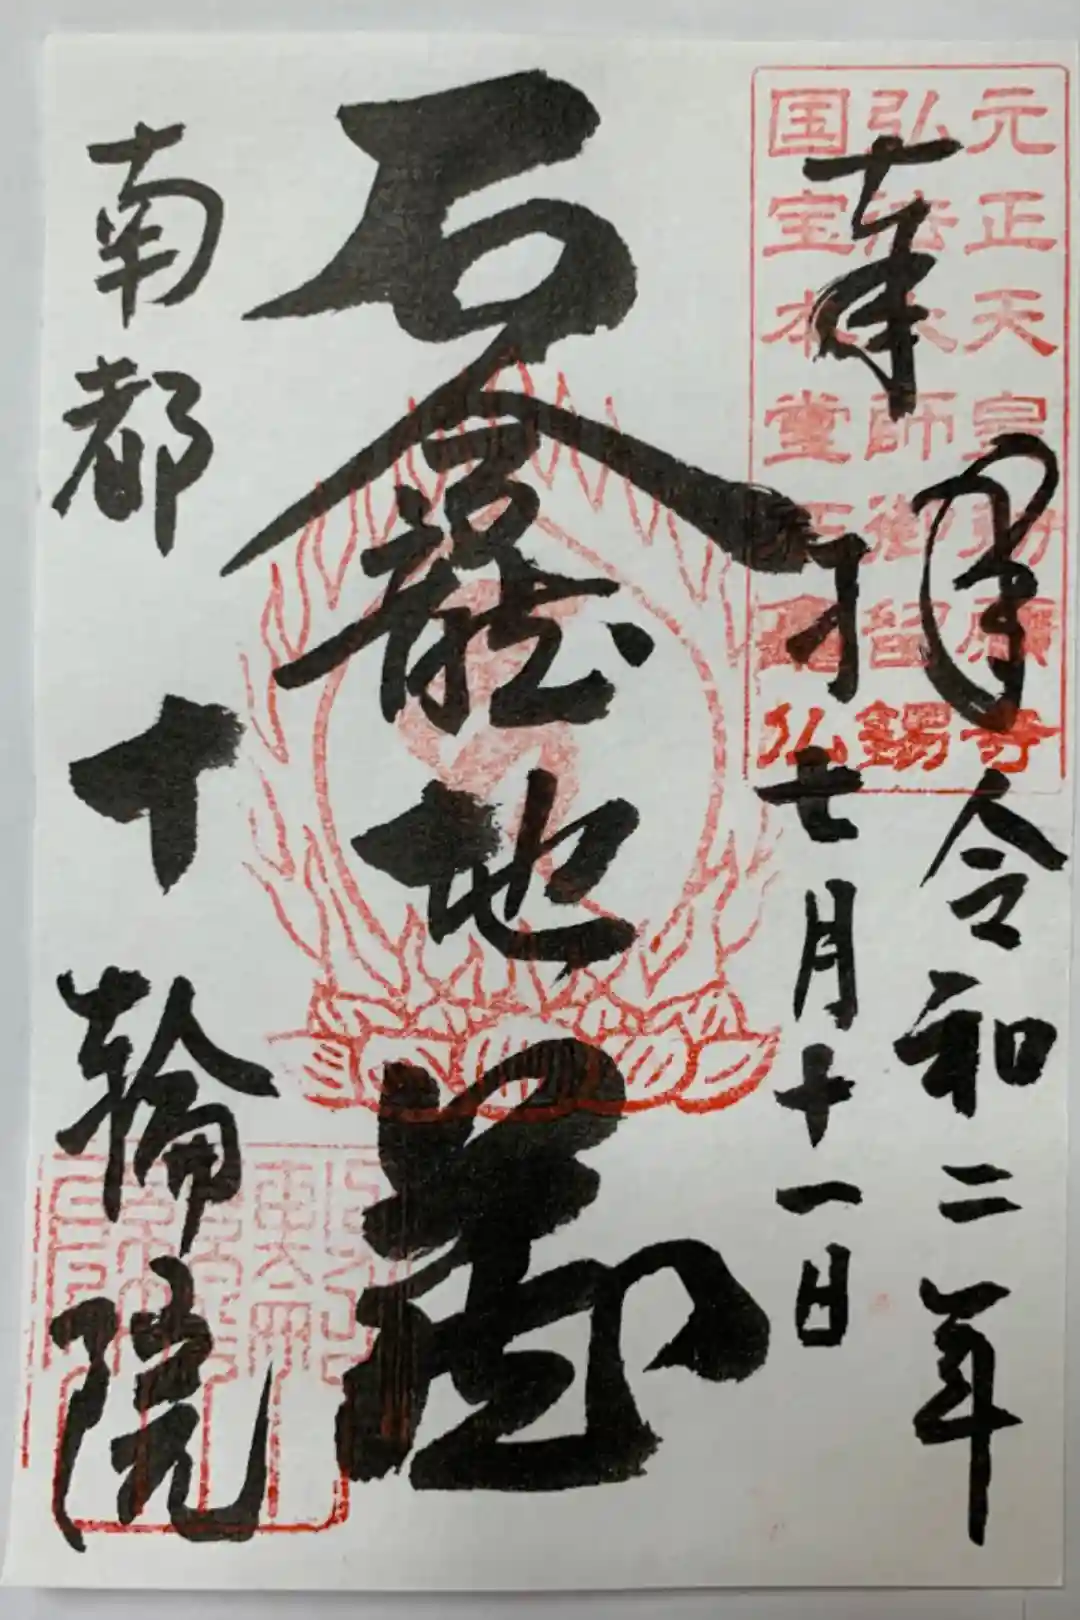 元正天皇勅願寺
弘法大師御留錫
国宝本堂石龕仏
奉拝
令和二年
七月十一日
石龕地蔵
南都
十輪院